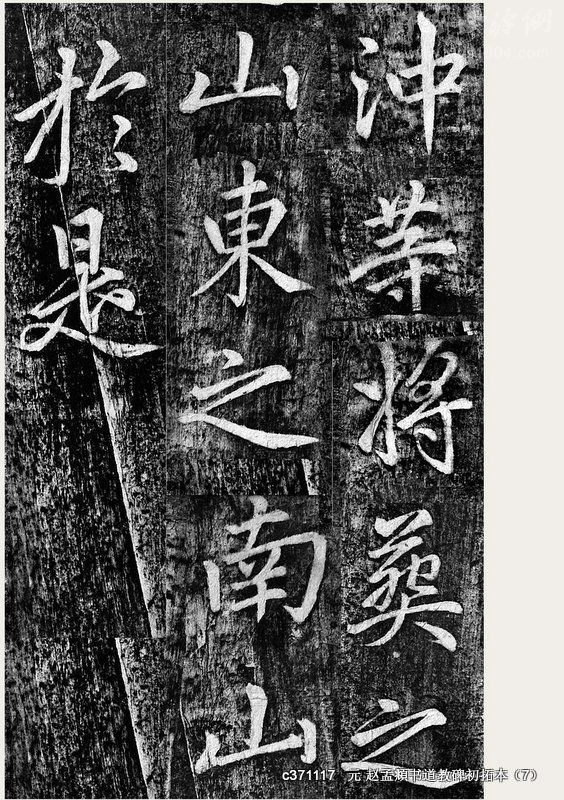 沖等將葬之
山東之南山
於是
c371117 元 赵孟頫书道教碑初拓本（7）